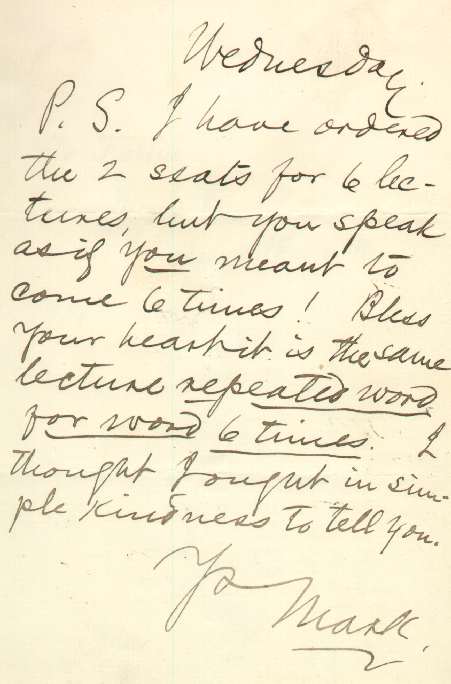 Wednesday.
P. S. I have ordered
the 2 seats for 6 lec-
tures, but you speak
as if you meant to
come 6 times! Bless
your heart it is the same
lecture repeated word
for word 6 times. I
thought I ought in sim-
ple kindness to tell you.
Ys
Mark.